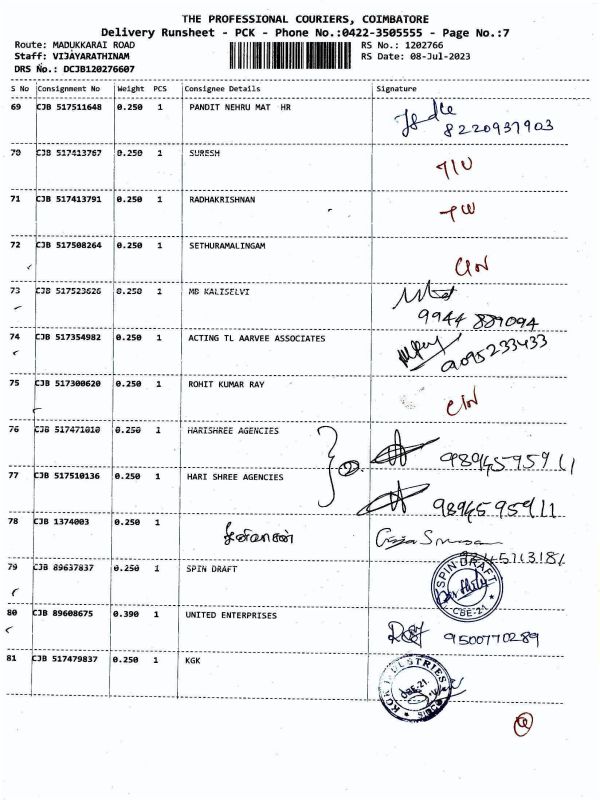 THE PROFESSIONAL COURIERS, COIMBATORE
Delivery Runsheet - PCK - Phone No.:0422-3505555 - Page No.:7
Route: MADUKKARAI ROAD RS No.: 1202766
Staff: VIJAYARATHINAM RS Date: 08-Jul-2023
DRS No.: DCJB120276607
S No Consignment No Weight PCS Consignee Details Signature
69 CJB 517511648 0.250 1 PANDIT NEHRU MAT HR
8220937903
70 CJB 517413767 0.250 1 SURESH
71 CJB 517413791 0.250 1 RADHAKRISHNAN
72 CJB 517508264 0.250 1 SETHURAMALINGAM
73 CJB 517523626 0.250 1 MD KALISELVI
9944 889094
74 CJB 517354982 0.250 1 ACTING TL AARVEE ASSOCIATES
9095233433
75 CJB 517300620 0.250 1 ROHIT KUMAR RAY
76 CJB 517471010 0.250 1 HARISHREE AGENCIES
2 9894595911
77 CJB 517510136 0.250 1 HARI SHREE AGENCIES
9894595911
78 CJB 1374003 0.250 1
சீனிவாசன்
79 CJB 89637837 0.250 1 SPIN DRAFT
SPIN DRAFT
CBE-21
80 CJB 89608675 0.390 1 UNITED ENTERPRISES
9500770289
81 CJB 517479837 0.250 1 KGK
KGK INDUSTRIES
CBE-21.